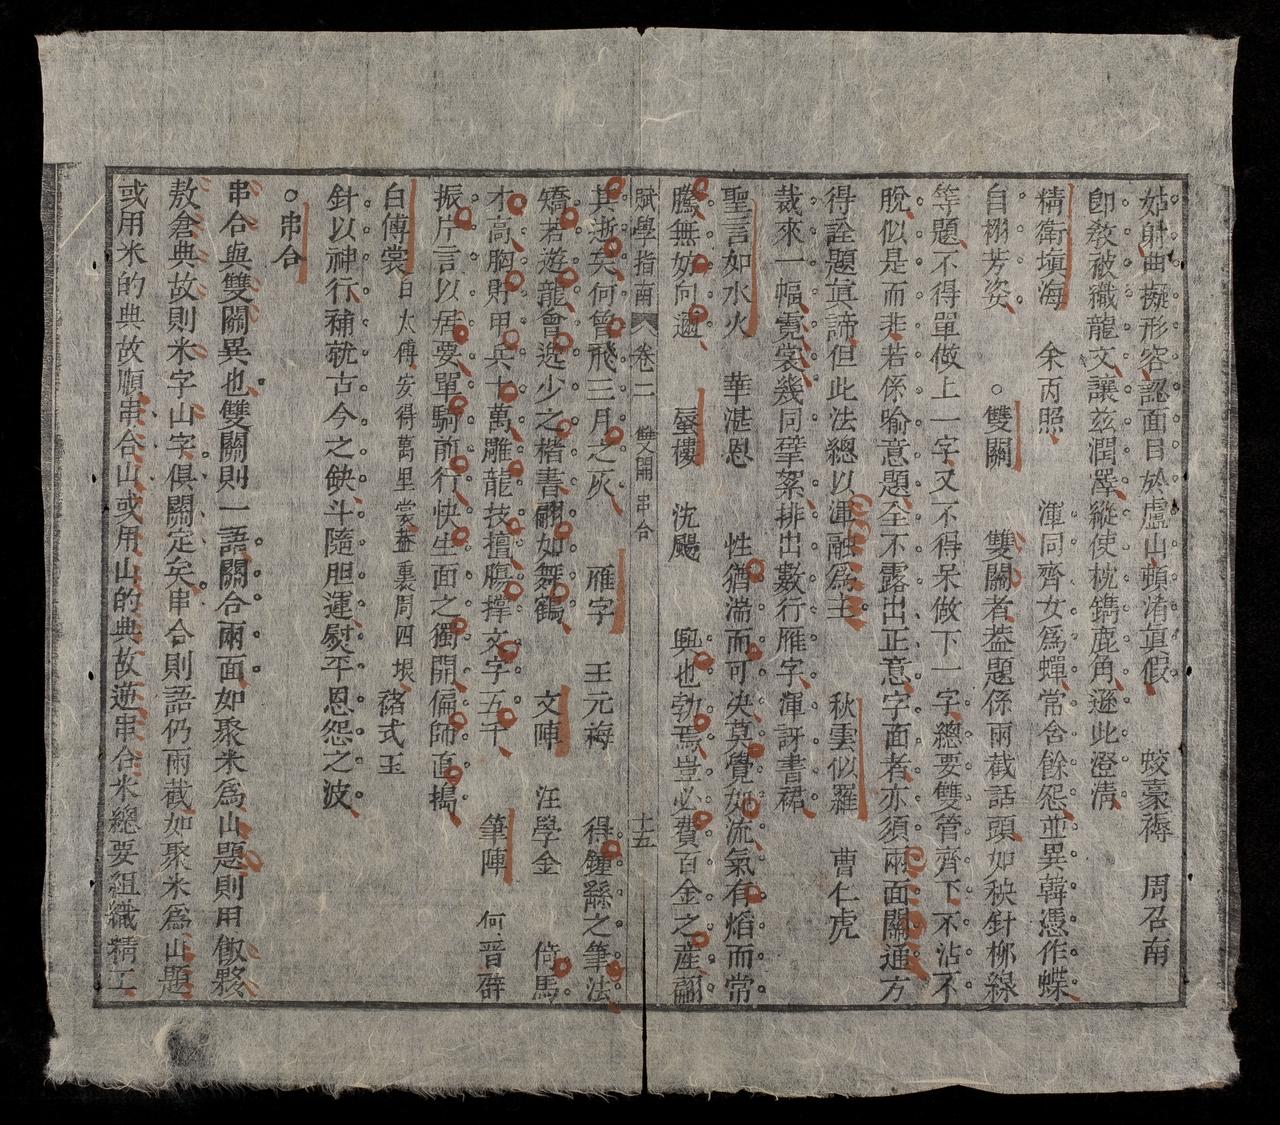 姑射曲擬形容認面目於廬山頓淆眞假　蛟豪褥　周召南
卽敎被獵龍文讓茲潤澤縱使枕鐫鹿角遜此澄淸
精衛塡海　余丙照　渾同齊女爲蟬常含餘怨並異韓憑作蝶
自栩芳姿　○雙關　雙關者葢題係兩截話頭如秧針柳線
等題不得單做上一字又不得呆做下一字總要雙管齊下不沾不
脫似是而非若係喻意題全不露出正意字面者亦須兩面關通方
得詮題眞諦但此法總以渾融爲主　秋雲似羅　曹仁虎
裁來一幅霓裳幾同擘絮排出數行雁字渾訝書裙
聖言如水火　華湛恩　性猶湍而可决莫覺如流氣有熖而常
騰無妨向邇　蜃樓　沈颺　興也勃焉豈必費百金之産翩
賦學指南　卷二　雙關　串合　十五
其逝矣何曾飛三月之灰　雁字　王元梅　得鍾繇之筆法
矯若遊龍會逸少之楷書翩如舞鶴　文陣　汪學金　倚馬
才高胸則甲兵十萬雕龍技擅膓撑文字五千　筆陣　何晉薛
振片言以居要單騎前行快生面之獨開偏師直搗
白傅裳白太傅安得萬里裳葢裹周四垠　褚式玉
針以神行補就古今之缺斗隨胆運熨平恩怨之波
○串合
串合與雙關異也雙關則一語關合兩面如聚米爲山題則用儆夥
敖倉典故則米字山字俱關定矣串合則語仍兩截如聚米爲山題
或用米的典故順串合山或用山的典故逆串合米總要組織精工